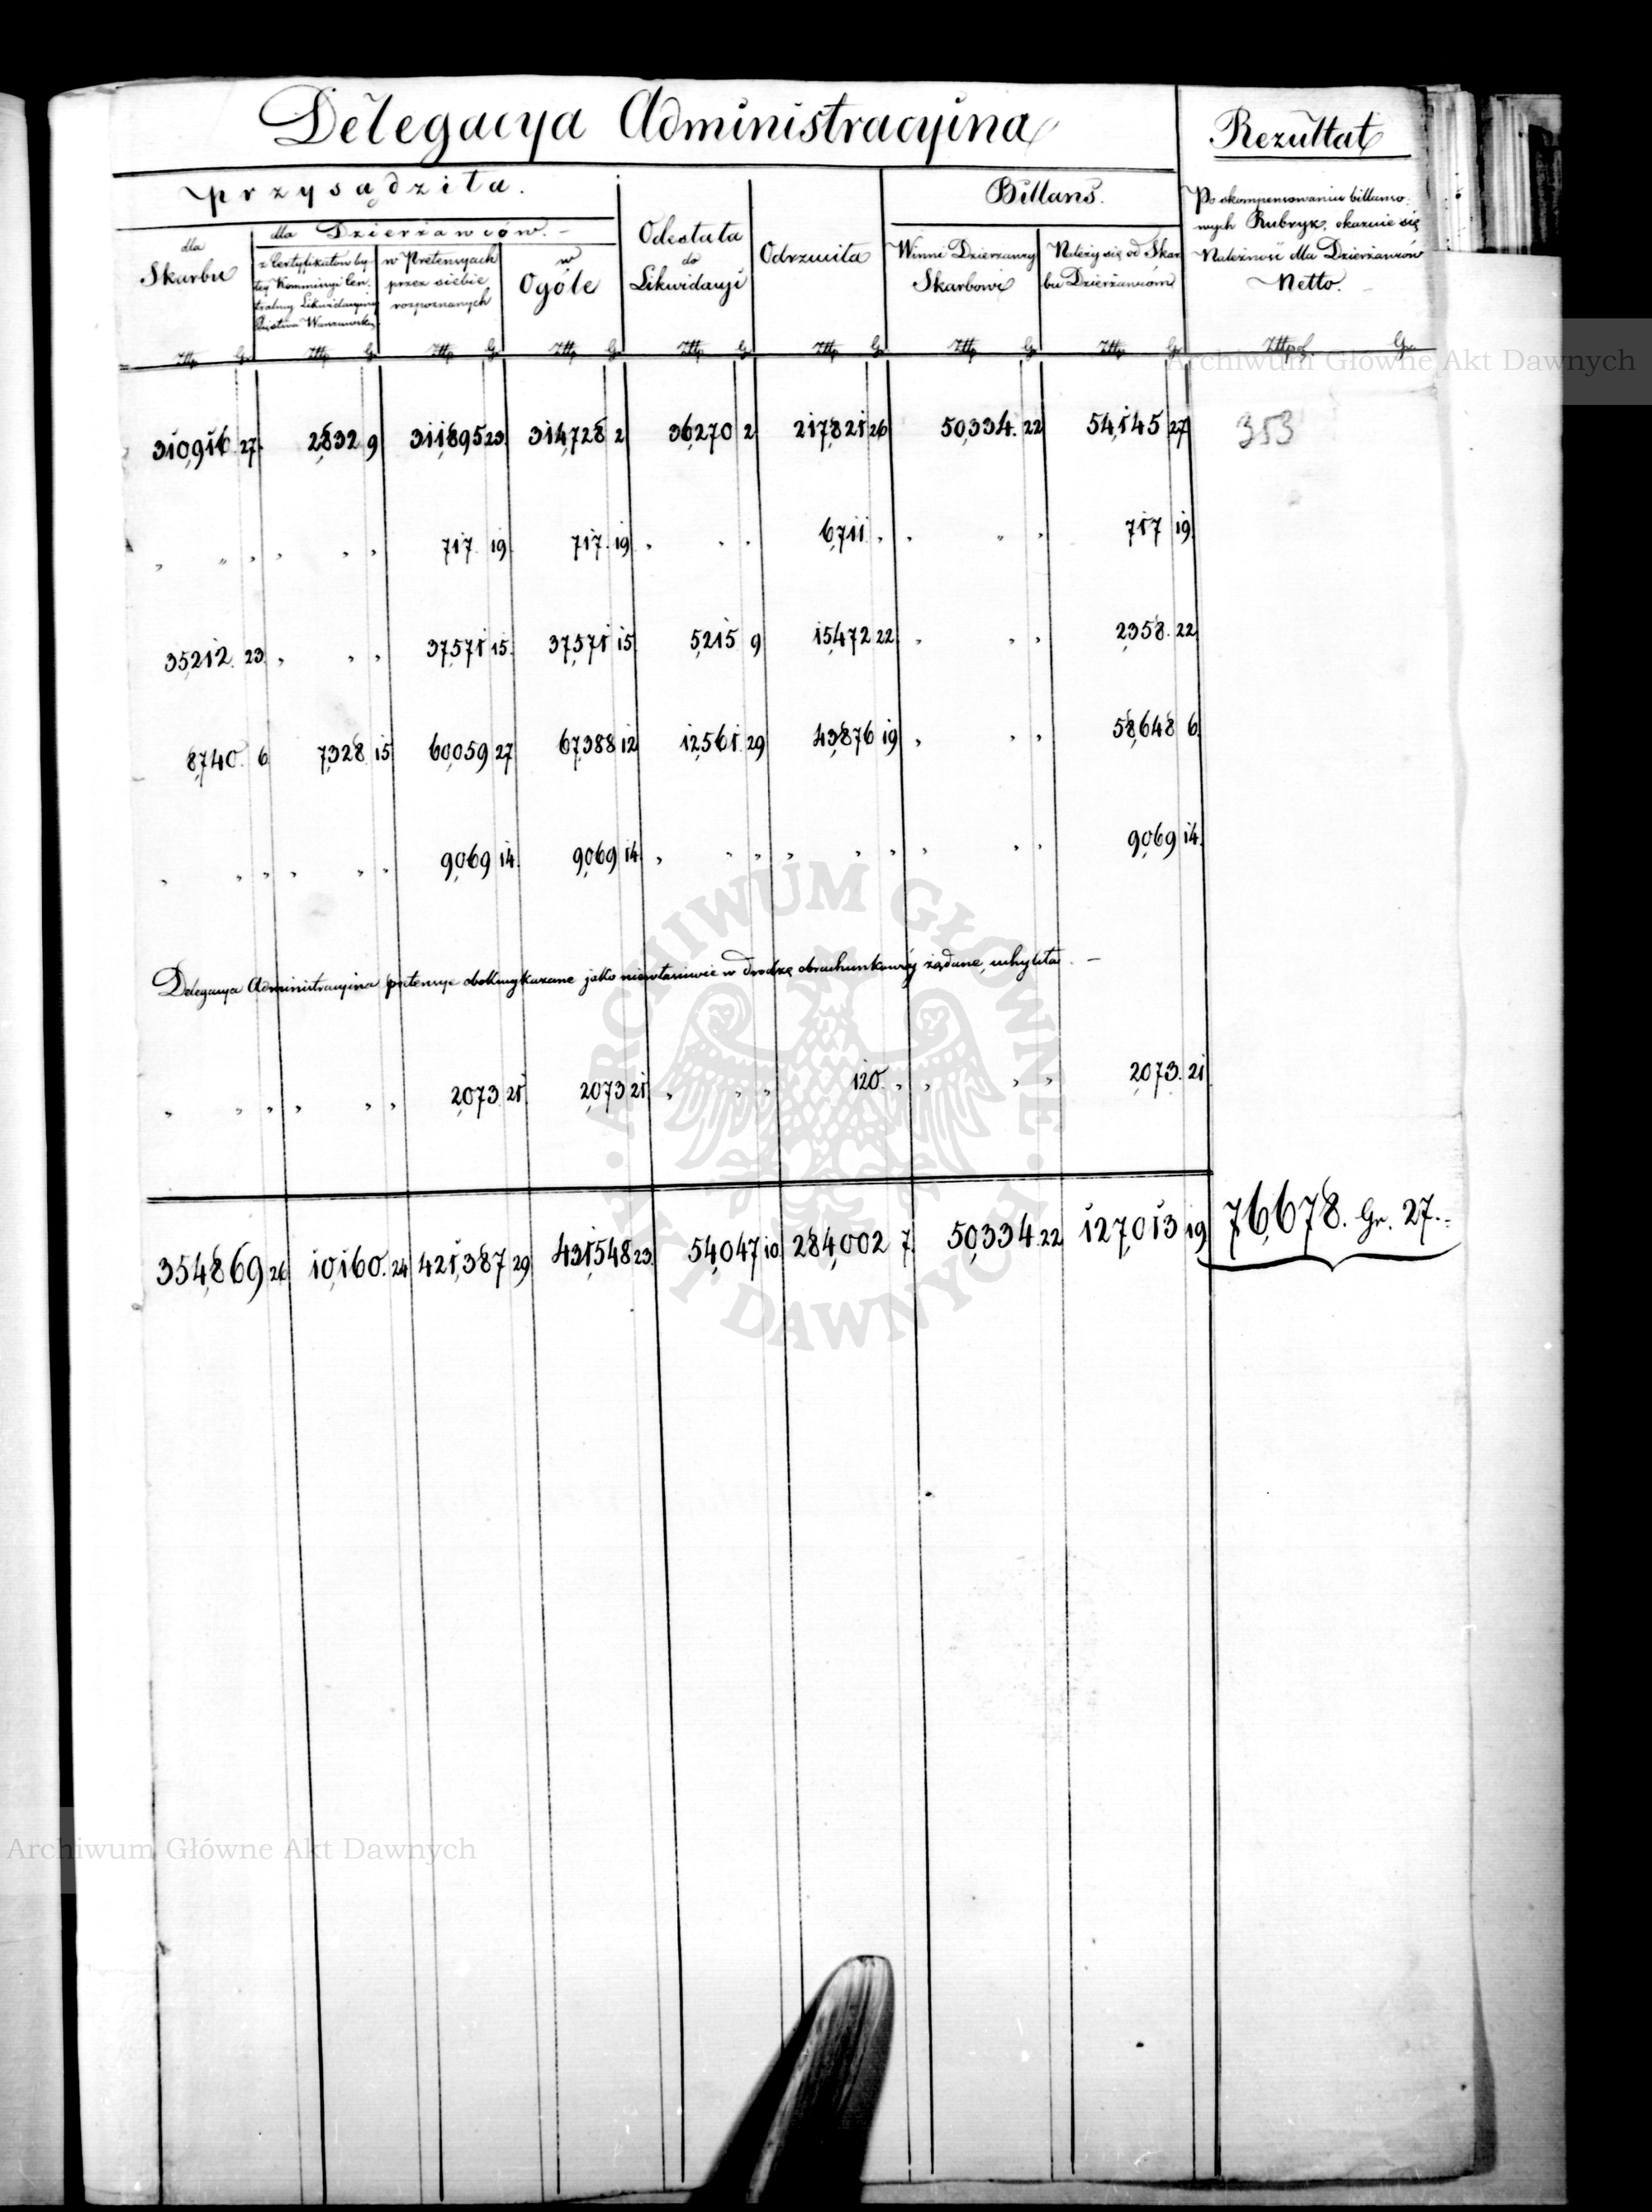 Delegacya Administracyina
Rezultat
przysądziła.
Billans.
Po skompensowaniu billanso-
wych Rubryk, okazuie się
Należność dla Dzierżawców
Netto.
dla
Skarbu
dla Dzierżawców.
z Certyfikatów by-
łey Kommissyi Cen-
tralney Likwidacyiney
Xięstwa Warszawskiego
w Pretensyach
przez siebie
rozpoznanych
w
Ogóle
Odesłała
do
Likwidacyi
Odrzuciła
Winni Dzierżawcy
Skarbowi
Należy się od Skar
bu Dzierżawcom
Złtp Gr Złtp Gr Złtp Gr Złtp Gr Złtp Gr Złtp Gr Złtp Gr Złtp Gr Złtpol. Gr.
310,916 27 2,832 9 311,895 23 314,728 2 36,270 2 217,821 26 50,334. 22 54,145 27 353
" " " " " " 717 19 717. 19 " " " 6,711 " " " " 717 19
35,212. 23 " " " 37,571 15 37,571 15 5,215 9 15,472 22 " " " 2,358. 22
8,740. 6 7,328 15 60,059 27 67,388 12 12,561. 29 43,876 19 " " " 58,648 6
" " " " " " 9,069 14 9,069 14 " " " " " " " " " 9,069 14
Delegacya Administracyina pretensye obokwykazane jako niewłaściwie w drodze obrachunkowéy żądane, uchyliła. —
" " " " " " 2,073. 21 2,073 21 " " " 120. " " " " 2,073. 21
354,869 26 10,160. 24 421,387 29 431,548 23 54,047 10 284,002 7 50,334. 22 127,013 19 76,678. Gr. 27.
Archiwum Główne Akt Dawnych
ARCHIWUM GŁÓWNE · AKT DAWNYCH ·
Archiwum Główne Akt Dawnych